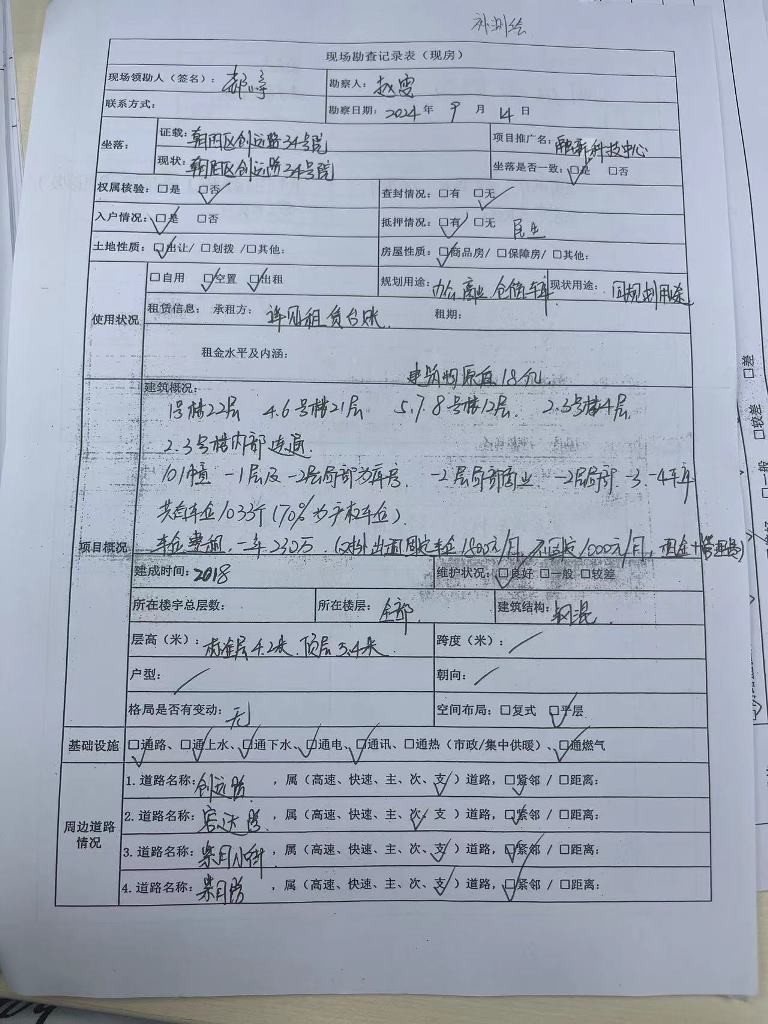 补测绘
现场勘查记录表（现房）
现场领勘人（签名）： 郝峰 勘察人： 赵雯
联系方式： 勘察日期：2024 年 9 月 14 日
坐落： 证载：朝阳区创远路34号院 项目推广名：融新科技中心
现状：朝阳区创远路34号院 坐落是否一致：☑是 □否
权属核验：□是 ☑否 查封情况：□有 ☑无
入户情况：☑是 □否 抵押情况：☑有 □无 民生
土地性质：☑出让/ □划拨 /□其他： 房屋性质：☑商品房/ □保障房/ □其他：
使用状况 □自用 ☑空置 ☑出租 规划用途：办公 商业 仓储 车库 现状用途：同规划用途
租赁信息： 承租方： 详见租赁台账 租期：
租金水平及内涵：
建筑物原值18亿
项目概况 建筑概况：
1号楼22层 4.6号楼21层 5.7.8号楼12层. 2.3号楼4层
2.3号楼内部连通.
101幢 -1层及-2层局部为库房. -2层局部商业. -2层局部 -3.-4车库
共有车位1033个(70%为产权车位).
一年230万 固定车位1500元/月, 不固定1000元/月, 租金+管理费)
建成时间：2018 维护状况：☑良好 □一般 □较差
所在楼宇总层数： 所在楼层：全部 建筑结构：钢混
层高（米）：标准层4.2米. 顶层5.4米 跨度（米）：／
户型：／ 朝向：／
格局是否有变动：无 空间布局：□复式 ☑平层
基础设施 ☑通路、☑通上水、☑通下水、☑通电、☑通讯、□通热（市政/集中供暖）、☑通燃气
周边道路情况 1.道路名称：创远路 ，属（高速、快速、主、次、支✓）道路，☑紧邻 / □距离：
2.道路名称：宏达路 ，属（高速、快速、主、次✓、支 ）道路，☑紧邻 / □距离：
3.道路名称：紫月小街 ，属（高速、快速、主、次、支✓）道路，☑紧邻 / □距离：
4.道路名称：紫月路 ，属（高速、快速、主、次、支✓）道路，☑紧邻 / □距离：
□一般 □较差 □差